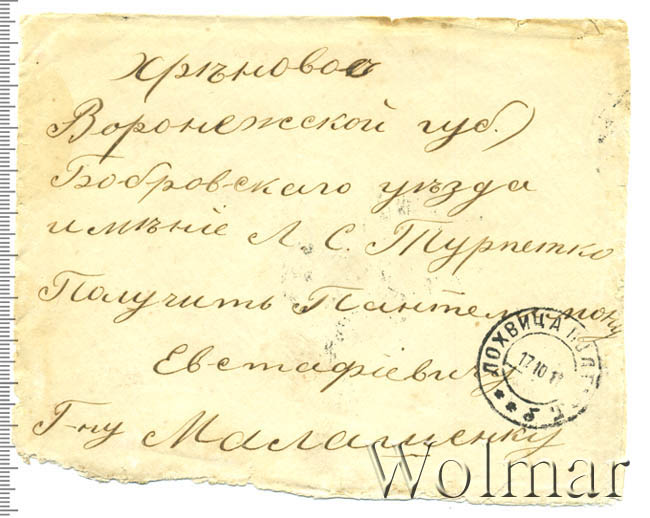 Хрѣновое
Воронежской губ.)
Бобровскаго уѣзда
имѣніе Л. С. Турпетко
Получить Пантелимону
Евстафіевичу
Г-ну Малашенку
ЛОХВИЦА ПОЛТ.
17 10
Wolmar